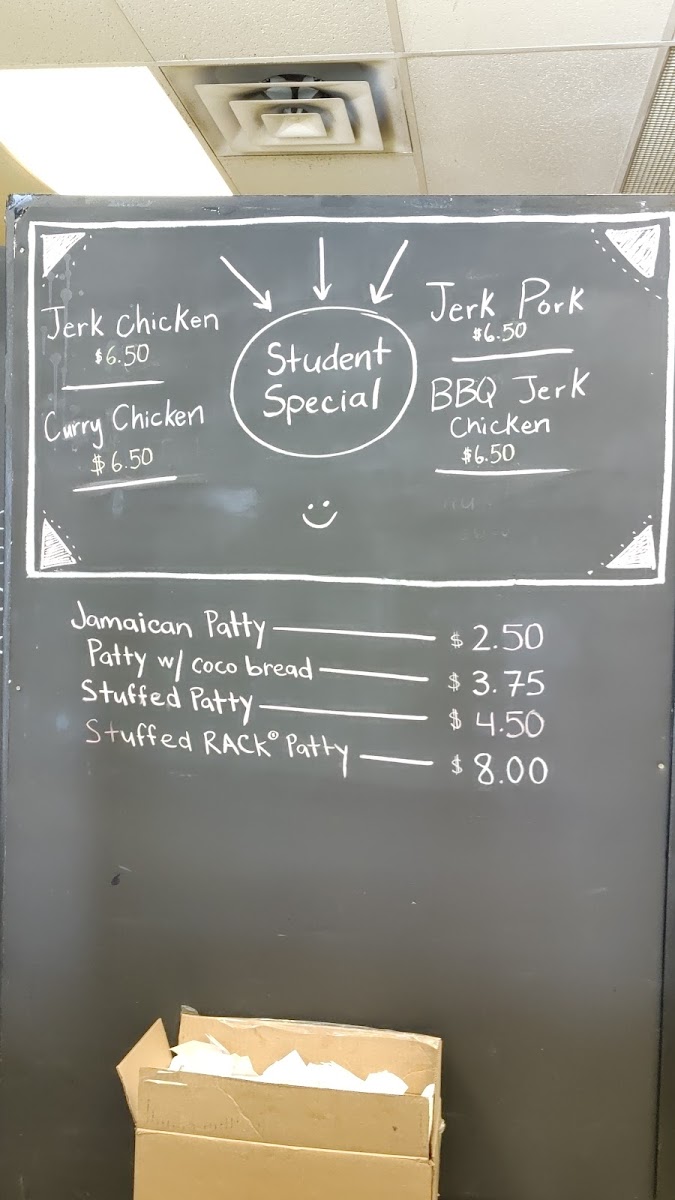 Jerk Chicken
$6.50
Curry Chicken
$6.50
Student
Special
Jerk Pork
$6.50
BBQ Jerk
Chicken
$6.50
Jamaican Patty $2.50
Patty w/ coco bread $3.75
Stuffed Patty $4.50
Stuffed RACK® Patty $8.00